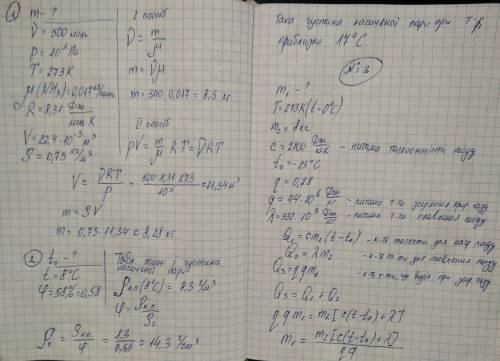 ①
m = ?
ν = 500 моль
p = 10⁵ Па
T = 273K
μ(NH₃) = 0,017 кг/моль
R = 8,31 Дж/моль K
V = 22,4·10⁻³ м³
ρ = 0,73 кг/м³
I спосіб
ν = m/μ
m = νμ
m = 500·0,017 = 8,5 кг
II спосіб
pV = m/μ RT = νRT
V = νRT/p = 500·8,31·273/10⁵ = 11,34 м³
m = ρV
m = 0,73·11,34 = 8,28 кг
②
t₀ - ?
t = 8°C
φ = 58% = 0,58
Табл. тиск і густина
насиченої пари
ρн.п(8°C) = 8,3 г/м³
φ = ρн.п/ρ₀
ρ₀ = ρн.п./φ = 8,3/0,58 = 14,3 г/см³
Така густина насиченої пари при
приблизно 17°C.
№ 3
m₁ - ?
T = 273K (t = 0°C)
m₂ = 8кг
c = 2100 Дж/кг·K - питома теплоємність льоду
t₀ = -15°C
η = 0,28
q = 44·10⁶ Дж/кг - питома т-та згорання прир. газу
λ = 332·10³ Дж/кг - питома т-та плавлення льоду
Q₁ = cm₂(t-t₀) - к-ть теплоти для нагр льоду
Q₂ = λm₂ - к-ть т-ти для плавлення льоду
Q₃ = ηqm₁ - к-ть т-ти, що виділ при згор. газу
Q₃ = Q₁ + Q₂
ηqm₁ = m₂[c(t-t₀)+λ]
m₁ = m₂[c(t-t₀)+λ]/ηq